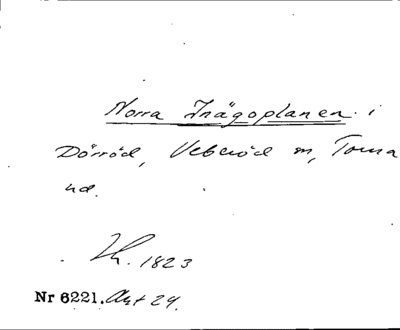 Norra Inägoplanen i
Dörröd, Veberöd m, Torna
hd.
Lh. 1823
Nr 6221. Akt 29.